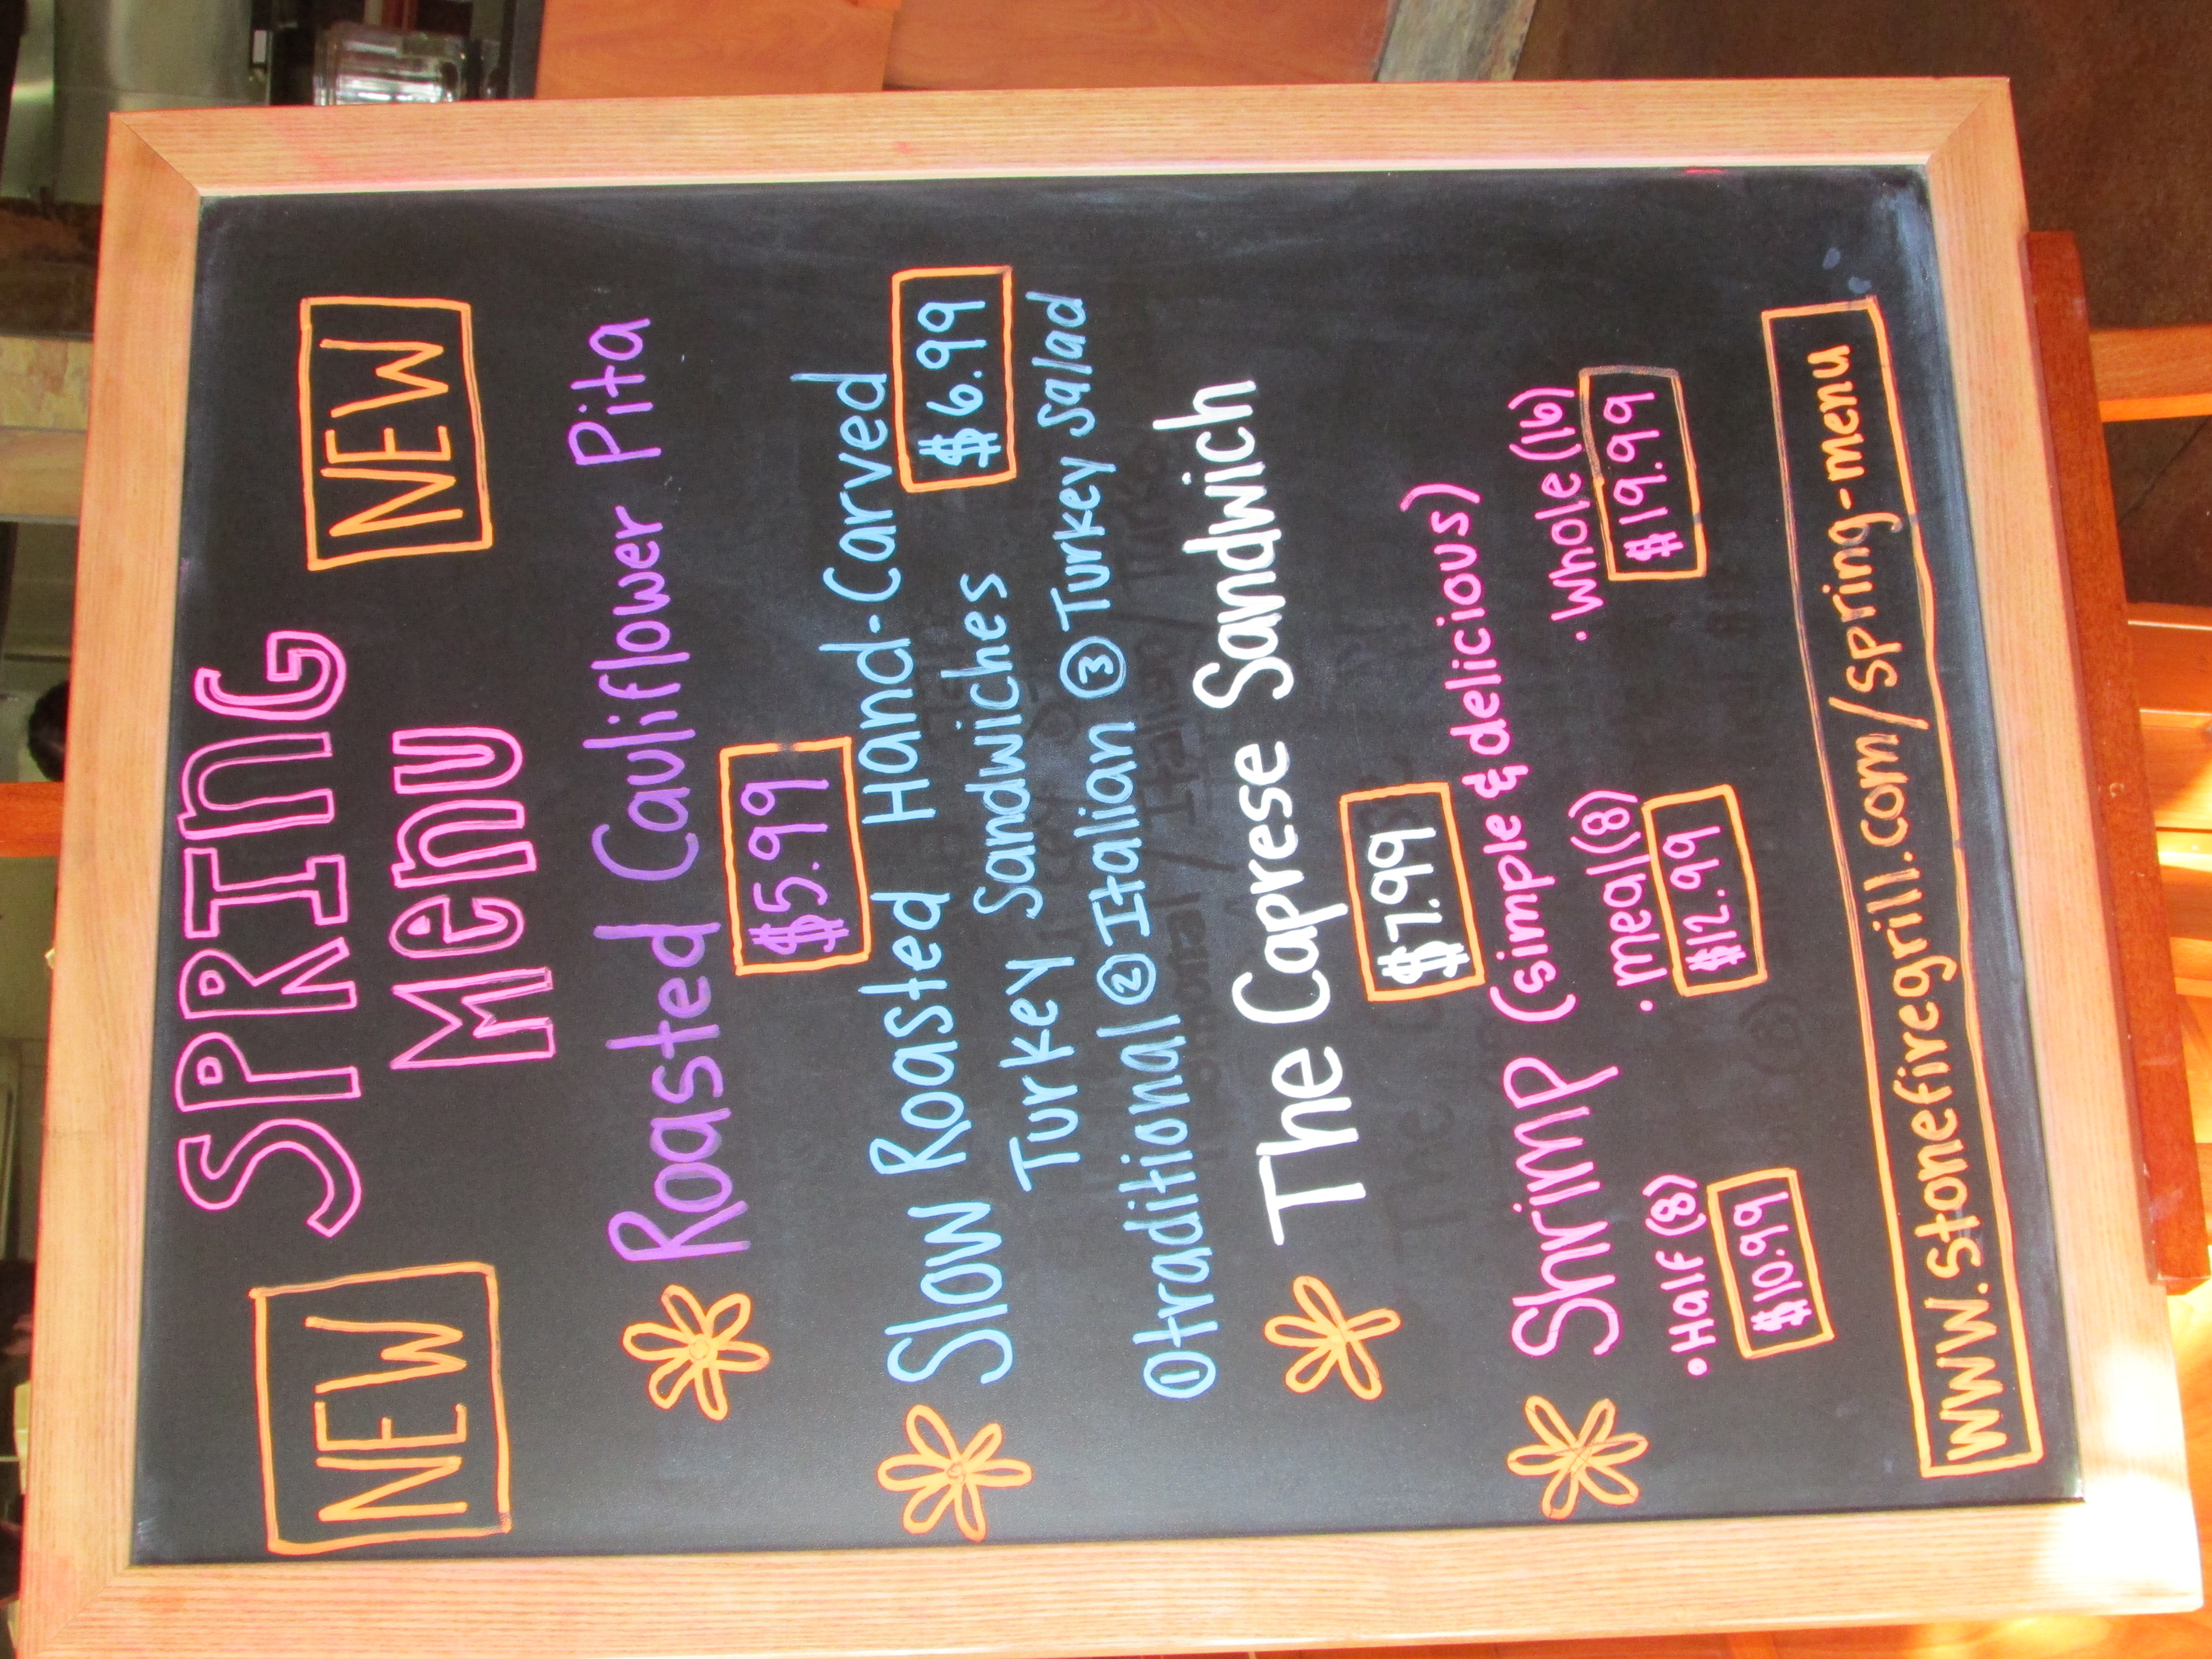 NEW SPRING NEW
Menu
Roasted Cauliflower Pita
$5.99
Slow Roasted Hand-Carved
Turkey Sandwiches $6.99
①traditional ②Italian ③Turkey Salad
The Caprese Sandwich
$7.99
Shrimp (simple & delicious)
•Half (8) •meal (8) •whole (16)
$10.99 $12.99 $19.99
www.stonefiregrill.com/spring-menu